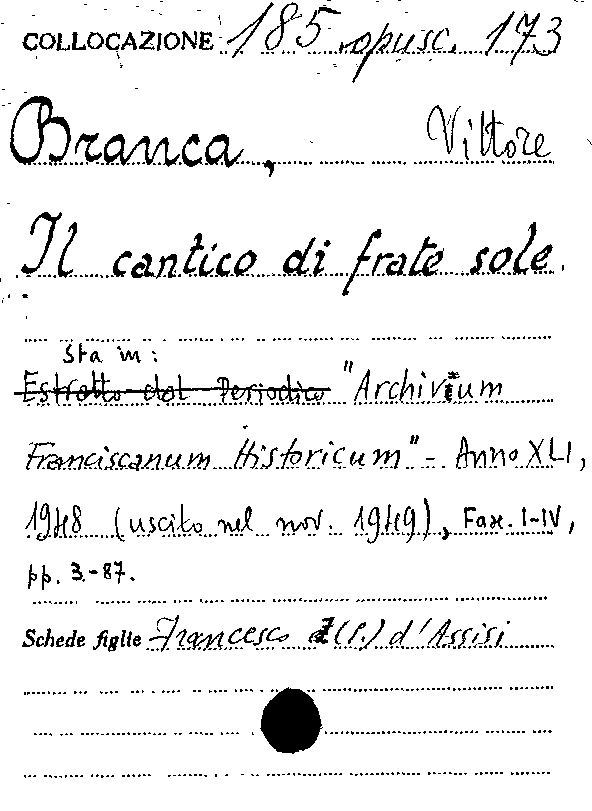 COLLOCAZIONE 185 opusc. 173
Branca, Vittore
Il cantico di frate sole.
Sta in:
Estratto dal Periodico "Archivium
Franciscanum Historicum" - Anno XLI,
1948 (uscito nel nov. 1949), Fasc. I-IV,
pp. 3-87.
Schede figlie Francesco (S.) d'Assisi